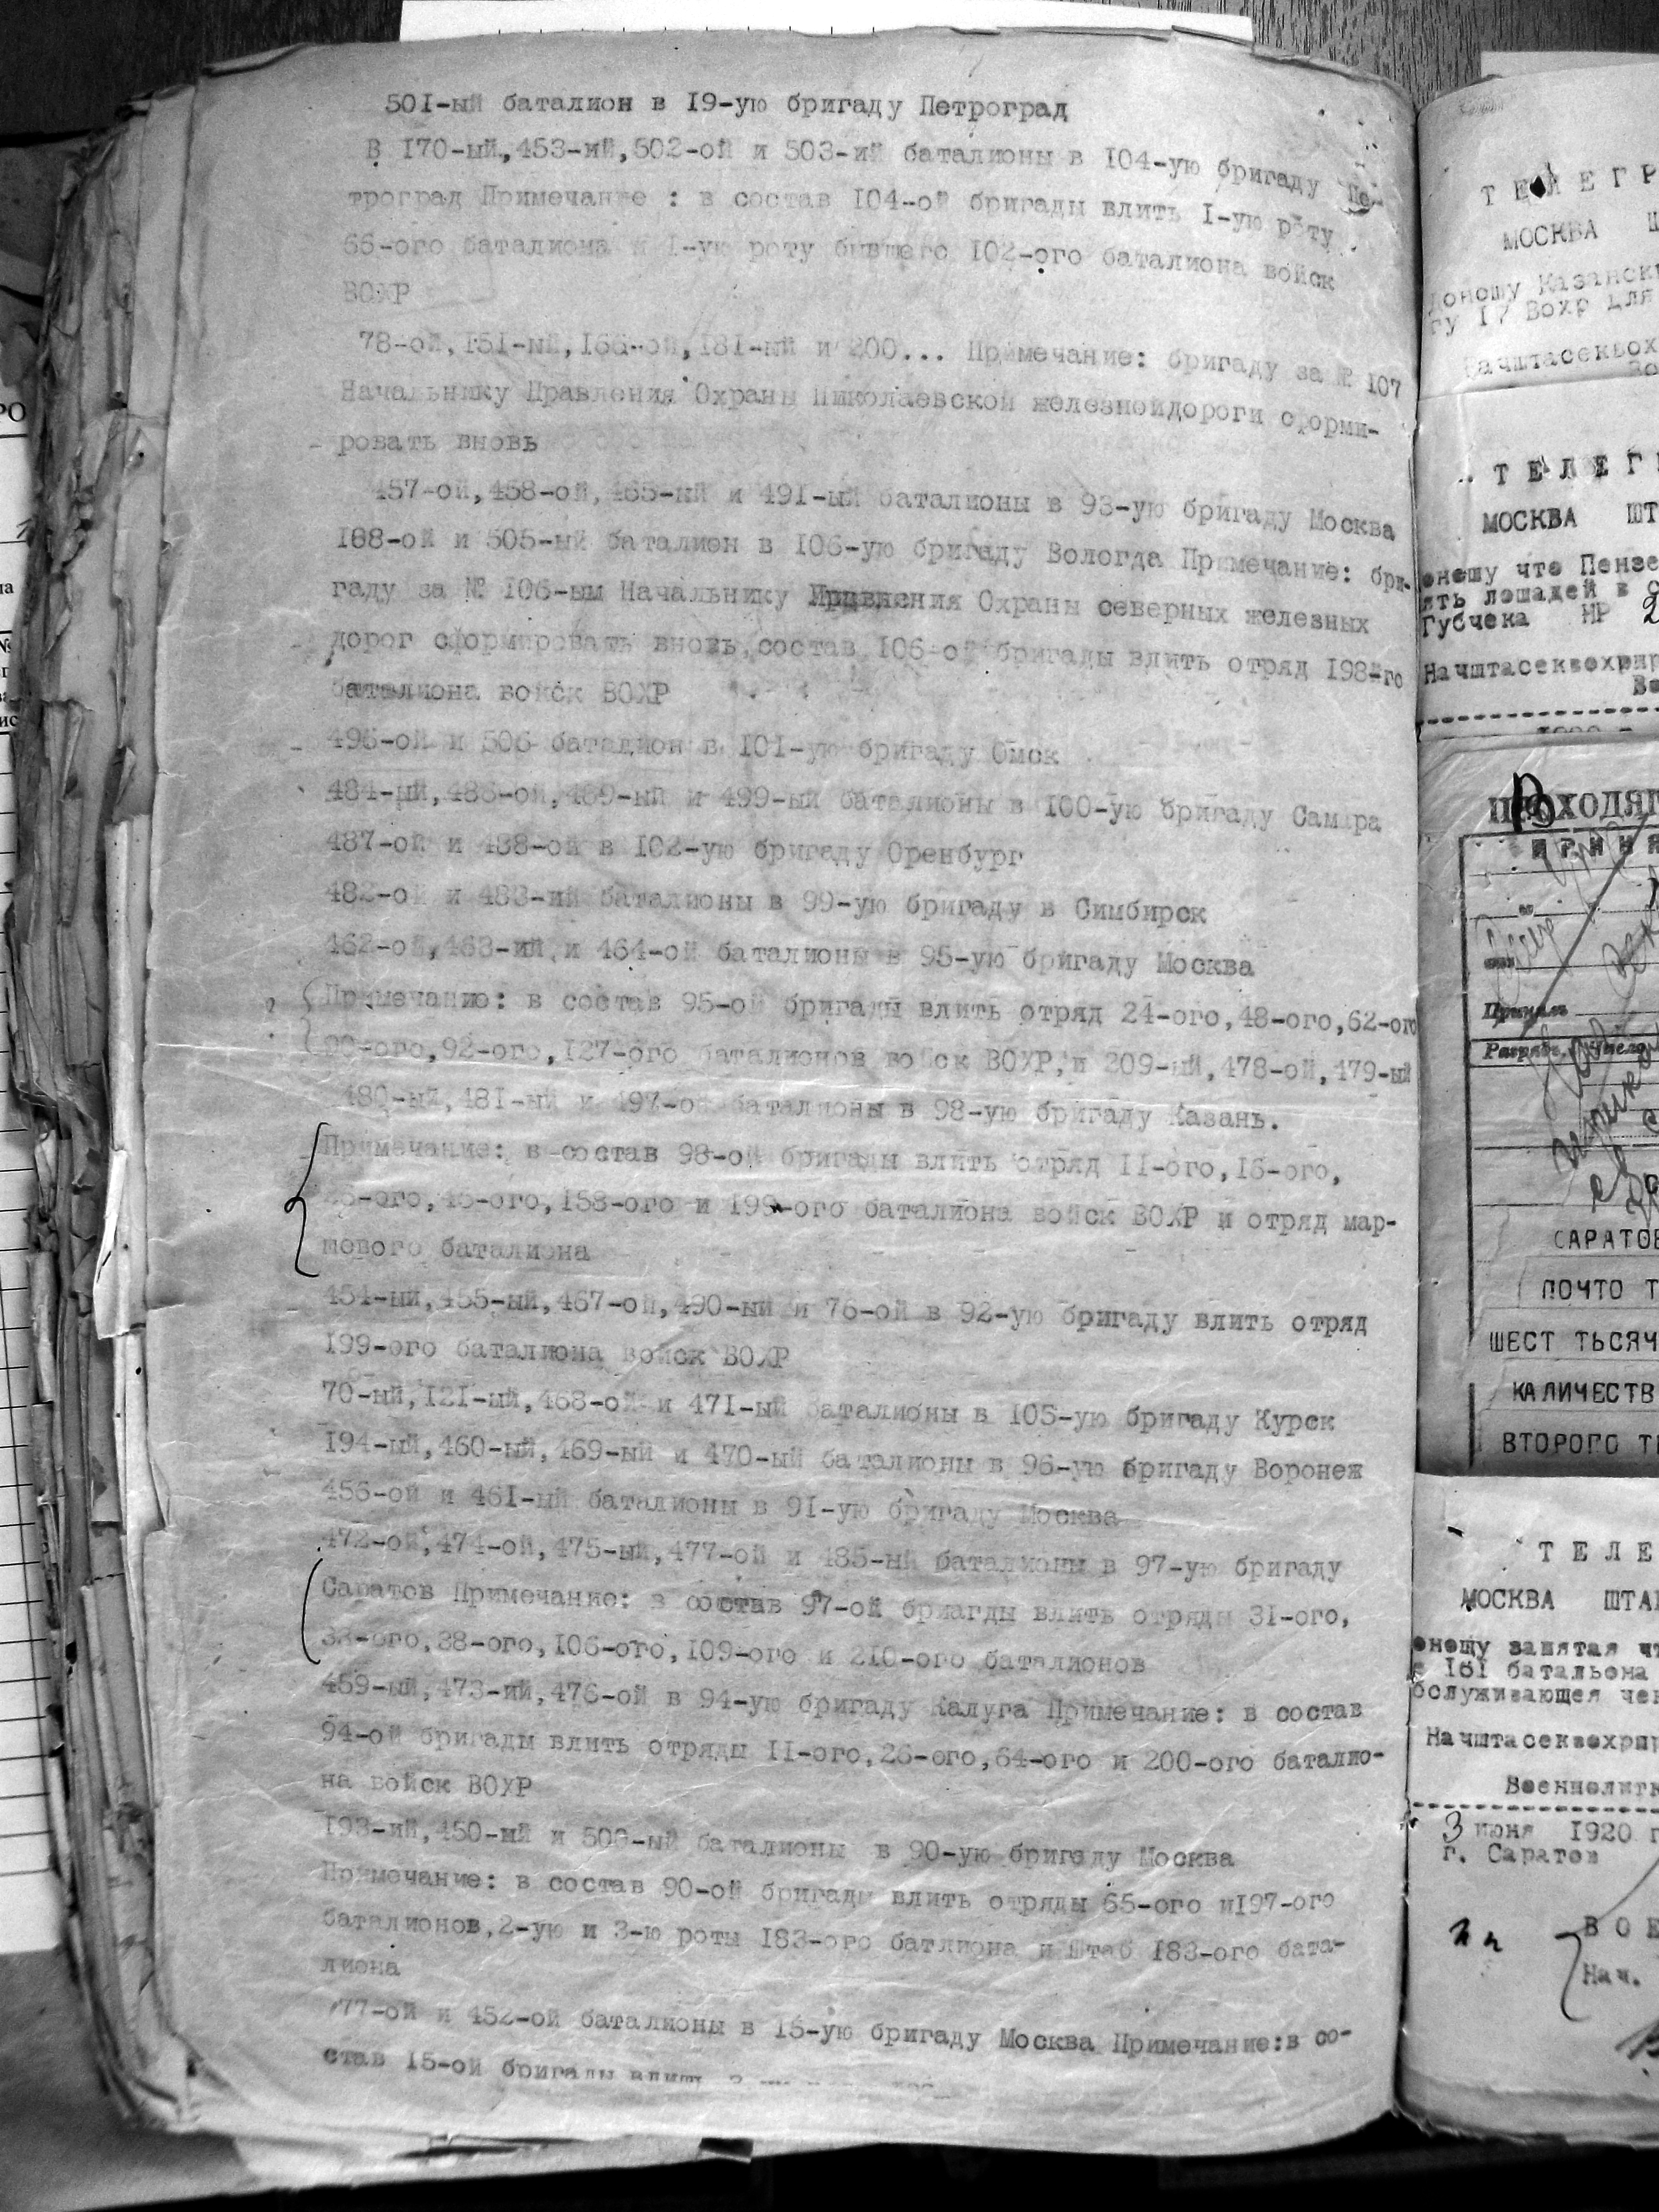 501-ый баталион в 19-ую бригаду Петроград
В 170-ый,453-ий,502-ой и 503-ий баталионы в 104-ую бригаду Пе-
троград Примечание : в состав 104-ой бригады влить 1-ую роту
66-ого баталиона и 1-ую роту бывшего 102-ого баталиона войск
ВОХР
78-ой,151-ый,166-ой,181-ый и 200... Примечание: бригаду за № 107
Начальнику Правления Охраны Николаевской железнойдороги сформи-
ровать вновь
457-ой,458-ой,465-ый и 491-ый баталионы в 93-ую бригаду Москва
188-ой и 505-ый баталион в 106-ую бригаду Вологда Примечание: бри-
гаду за № 106-ым Начальнику Правления Охраны северных железных
дорог сформировать вновь,состав 106-ой бригады влить отряд 198-го
баталиона войск ВОХР
496-ой и 506 баталион в 101-ую бригаду Омск
484-ый,486-ой,489-ый и 499-ый баталионы в 100-ую бригаду Самара
487-ой и 488-ой в 102-ую бригаду Оренбург
482-ой и 483-ий баталионы в 99-ую бригаду в Симбирск
462-ой,463-ий,и 464-ой баталионы в 95-ую бригаду Москва
Примечание: в состав 95-ой бригады влить отряд 24-ого,48-ого,62-ого
92-ого,127-ого баталионов войск ВОХР,и 209-ый,478-ой,479-ый
480-ый,481-ый и 497-ой баталионы в 98-ую бригаду Казань.
Примечание: в состав 98-ой бригады влить отряд 11-ого,16-ого,
158-ого и 199-ого баталиона войск ВОХР и отряд мар-
шового баталиона
454-ый,455-ый,467-ой,490-ый и 76-ой в 92-ую бригаду влить отряд
199-ого баталиона войск ВОХР
70-ый,121-ый,468-ой и 471-ый баталионы в 105-ую бригаду Курск
194-ый,460-ый,469-ый и 470-ый баталионы в 96-ую бригаду Воронеж
456-ой и 461-ый баталионы в 91-ую бригаду Москва
472-ой,474-ой,475-ый,477-ой и 485-ый баталионы в 97-ую бригаду
Саратов Примечание: в состав 97-ой бриагды влить отряды 31-ого,
33-ого,38-ого,106-ого,109-ого и 210-ого баталионов
459-ый,473-ий,476-ой в 94-ую бригаду Калуга Примечание: в состав
94-ой бригады влить отряды 11-ого,26-ого,64-ого и 200-ого баталио-
на войск ВОХР
193-ий,450-ый и 500-ый баталионы в 90-ую бригаду Москва
Примечание: в состав 90-ой бригады влить отряды 65-ого и197-ого
баталионов,2-ую и 3-ю роты 183-ого батлиона и Штаб 183-ого бата-
лиона
77-ой и 452-ой баталионы в 15-ую бригаду Москва Примечание:в со-
став 15-ой бригады влить
ТЕЛЕГР
МОСКВА Ш
доношу Казански
гу 17 Вохр для
Начштасеквох
Во
ТЕЛЕГР
МОСКВА ШТ
оношу что Пензе
ять лошадей в с
Губчека НР 2
Начштасеквохрир
Во
ПРОХОДЯЩ
ПРИНЯ
Принял
САРАТОВ
ПОЧТО Т
ШЕСТ ТЬСЯЧ
КАЛИЧЕСТВ
ВТОРОГО ТЬ
ТЕЛЕ
МОСКВА ШТАБ
оношу занятая чт
181 батальона
бслуживающея чек
Начштасеквохрир
Военполитк
3 июня 1920 г
г. Саратов
ВОЕ
Нач.